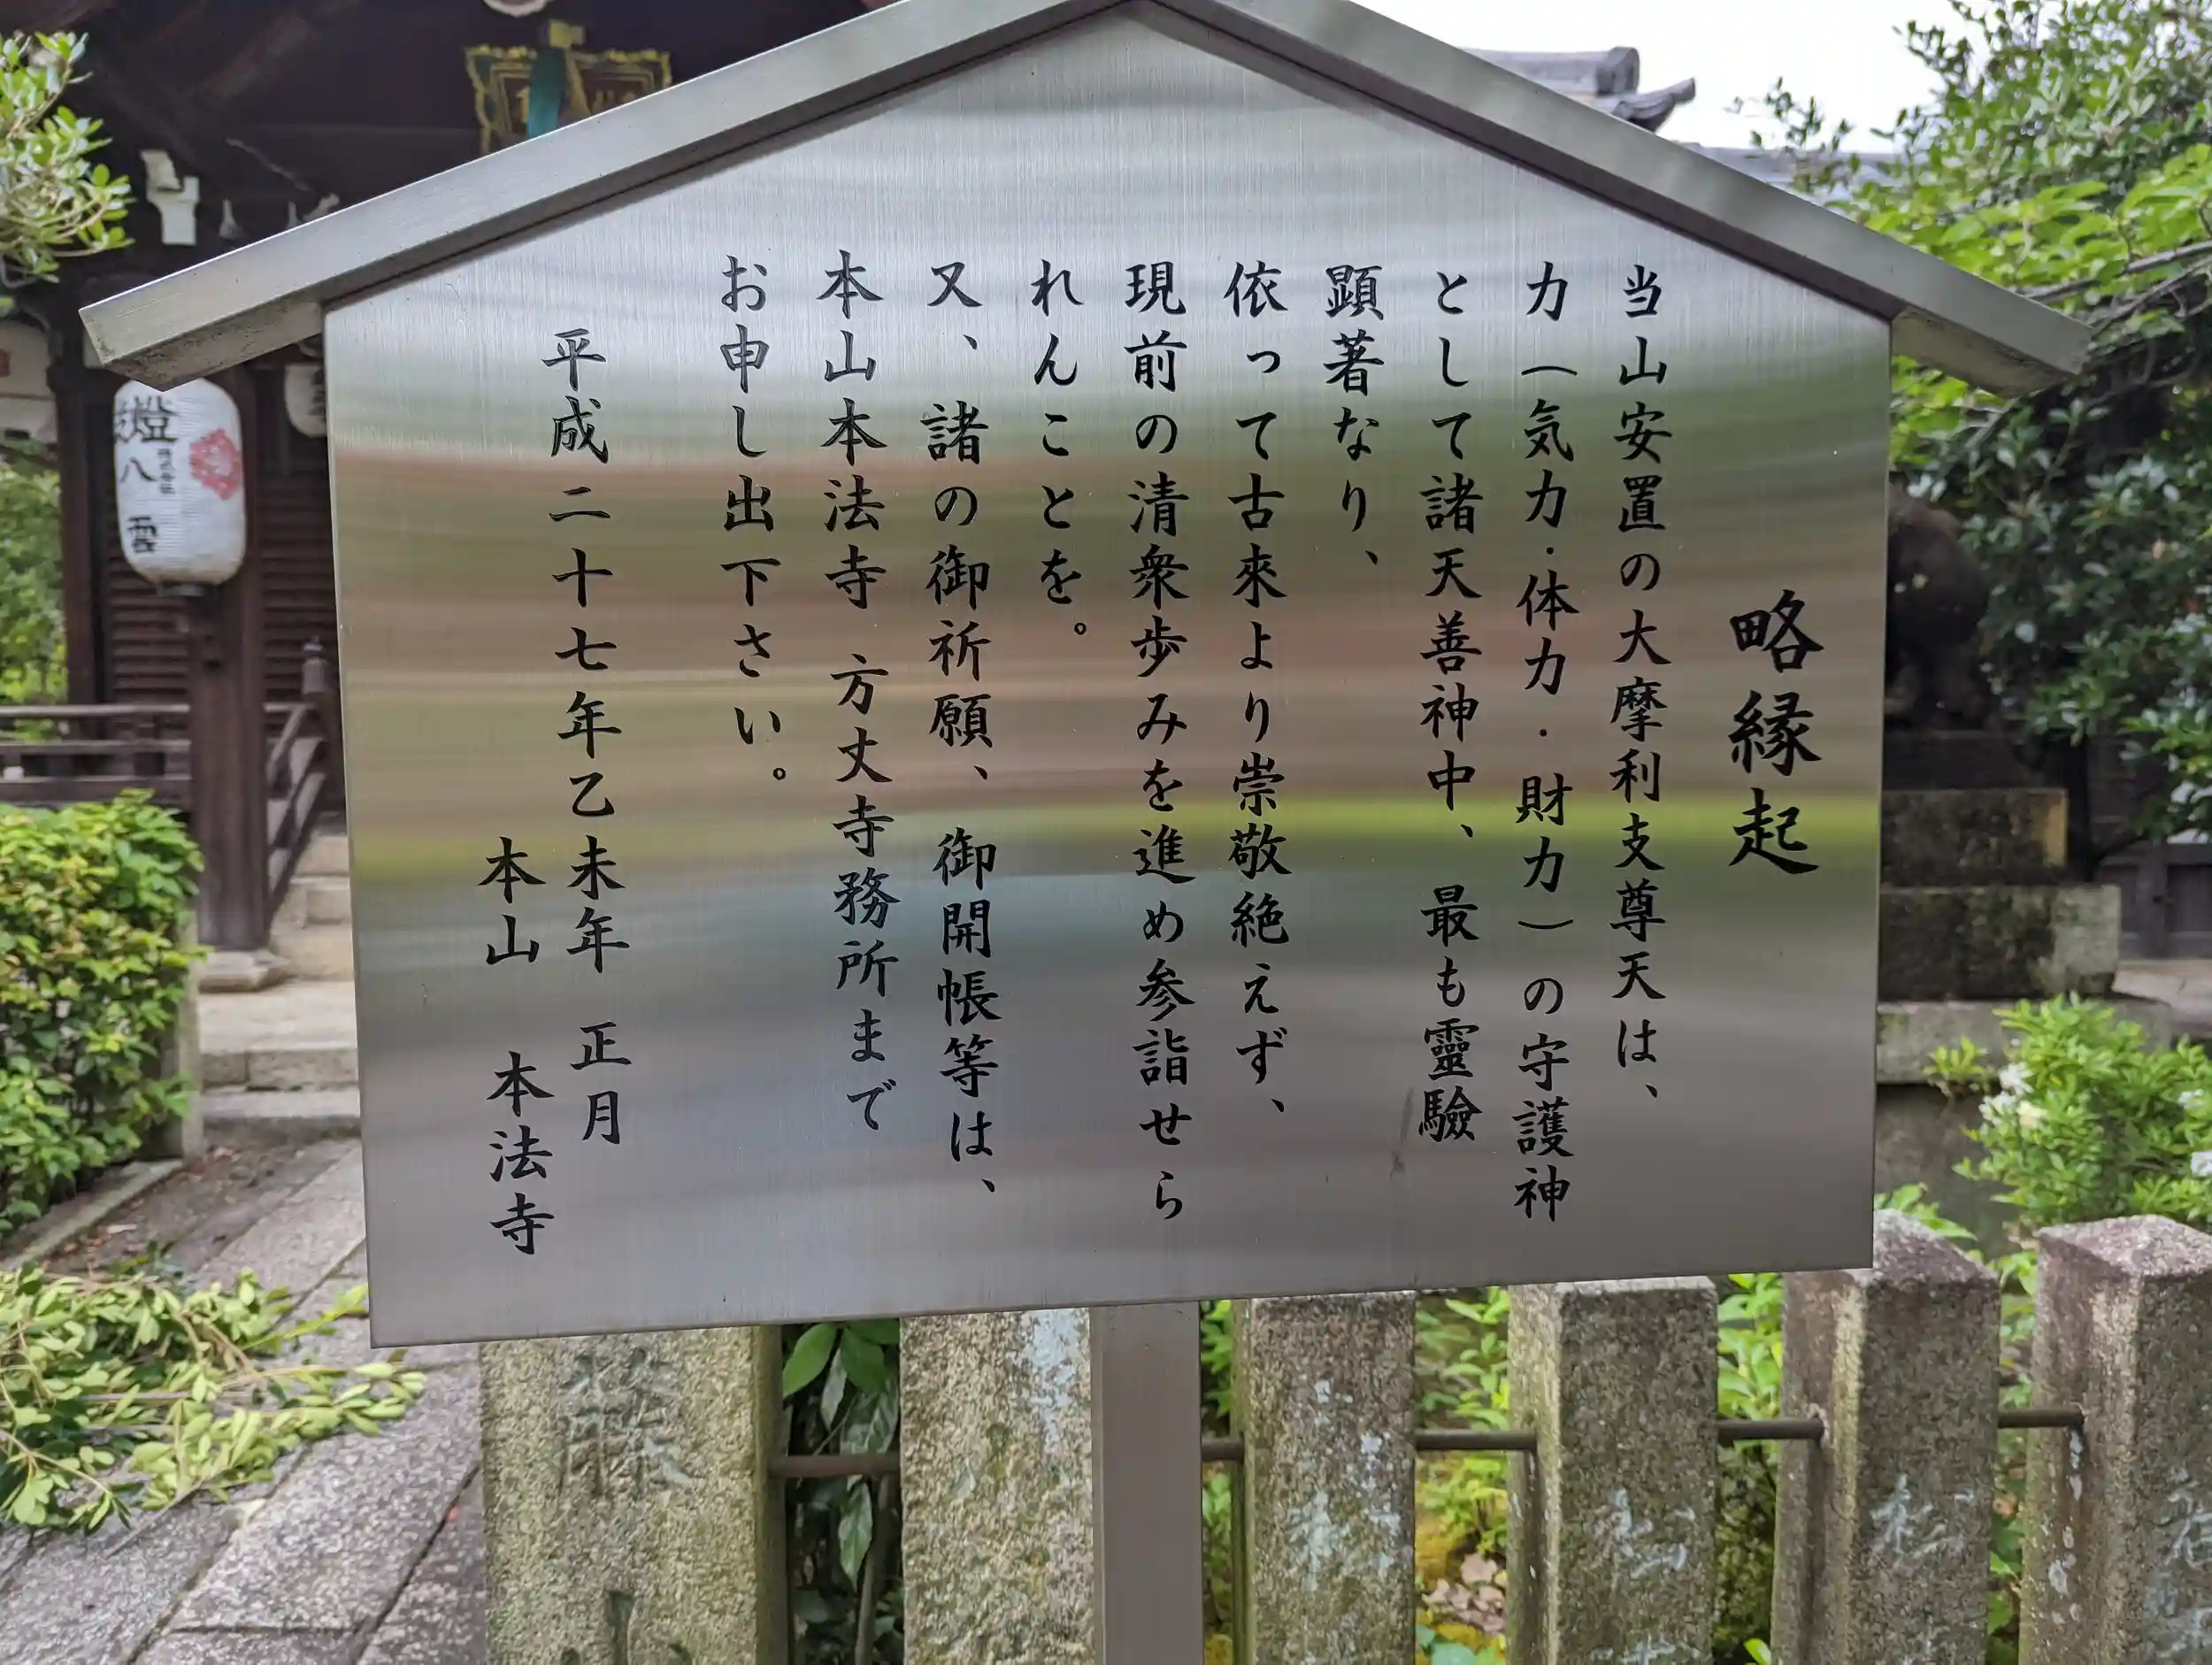 略縁起
当山安置の大摩利支尊天は、
力（気力・体力・財力）の守護神
として諸天善神中、最も靈驗
顕著なり、
依って古來より崇敬絶えず、
現前の清衆歩みを進め参詣せら
れんことを。
又、諸の御祈願、御開帳等は、
本山本法寺 方丈寺務所まで
お申し出下さい。
平成二十七年乙未年 正月
本山 本法寺
燈
八雲